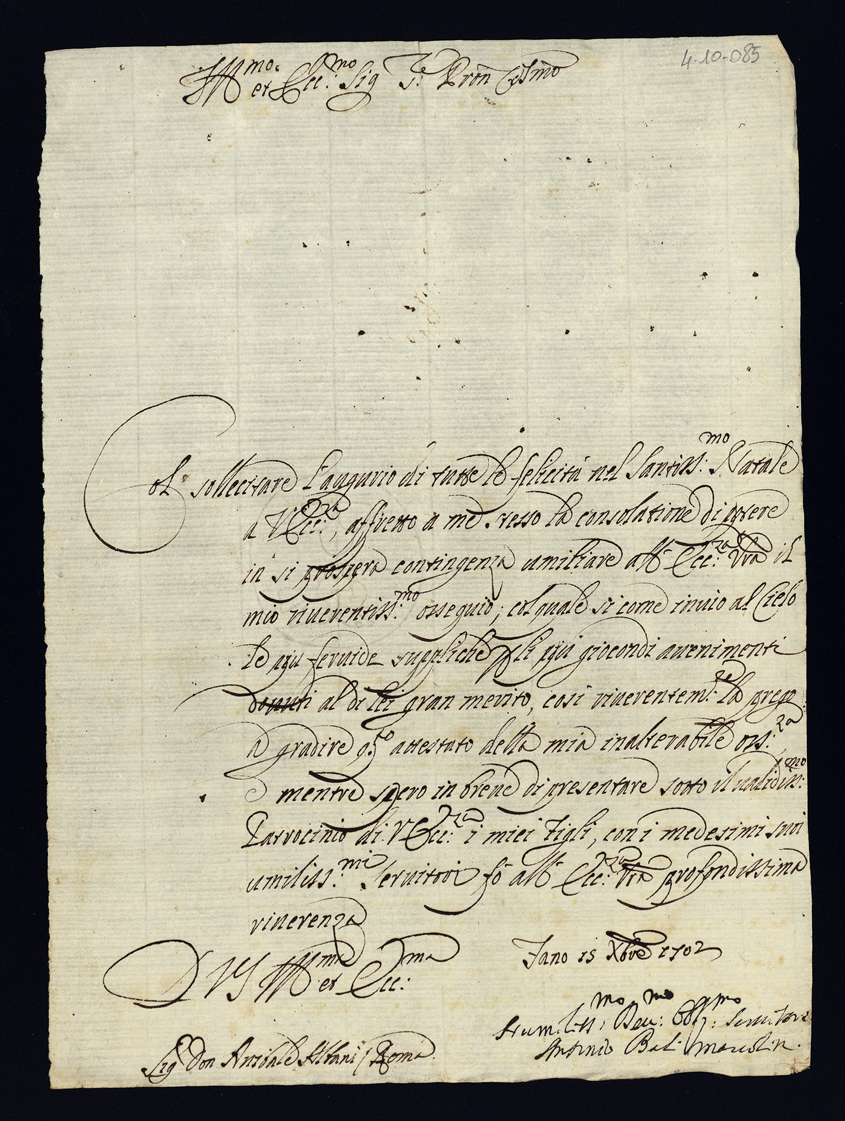 4-10-085
Ill.mo et Ecc.mo Sig.re P.ron Col.mo
Col sollecitare l'augurio di tutte le felicità nel Santiss.mo Natale
a V. Ecc.za, affretto a me stesso la consolatione di potere
in si prospera contingenza umiliare all' Ecc.za Vra il
mio riuerentiss.mo ossequio; col quale si come inuio al Cielo
le più feruide suppliche p li più giocondi auuenimenti
douuti al di lei gran merito, così riuerentem.te la prego
a gradire q.to attestato della mia inalterabile oss.za
e mentre spero in breue di presentare sotto il ualidm.mo
Patrocinio di V. Ecc.za i miei figli, con i medesimi suoi
umiliss.mi seruitori fò all' Ecc.za Vra profondissima
riuerenza
D V S Ill.ma et Ecc.ma
Fano 15 Xbre 1702
Humiliss.mo Deu.mo Obblig.mo Seruitore
Antonio Marcolin.
Sig.r Don Anibale Albani / Roma